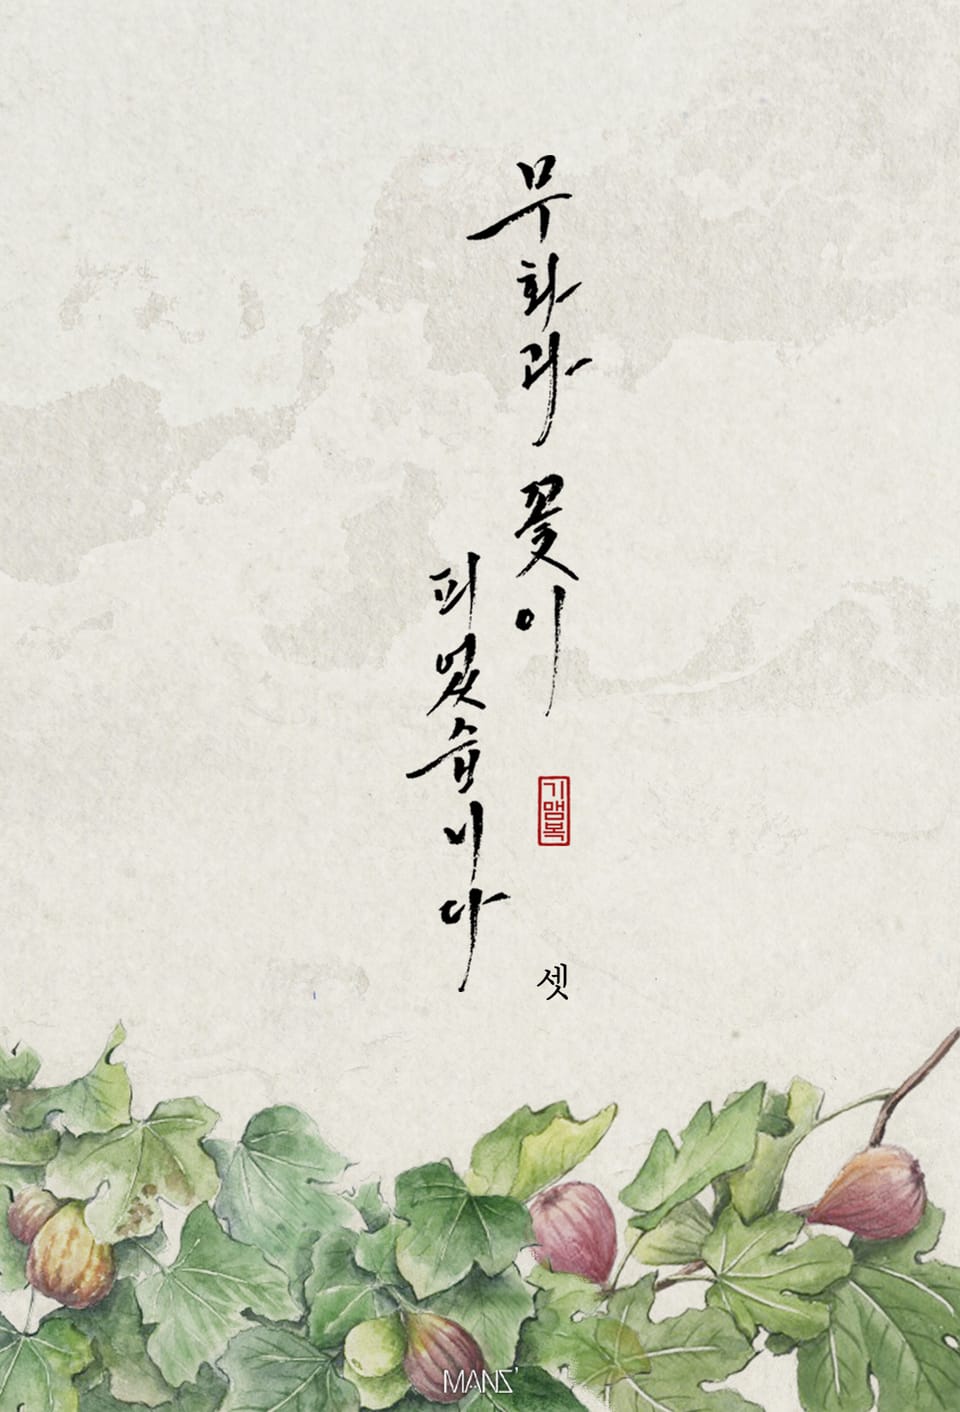 무화과 꽃이
피었습니다
기맴복
셋
MANS'